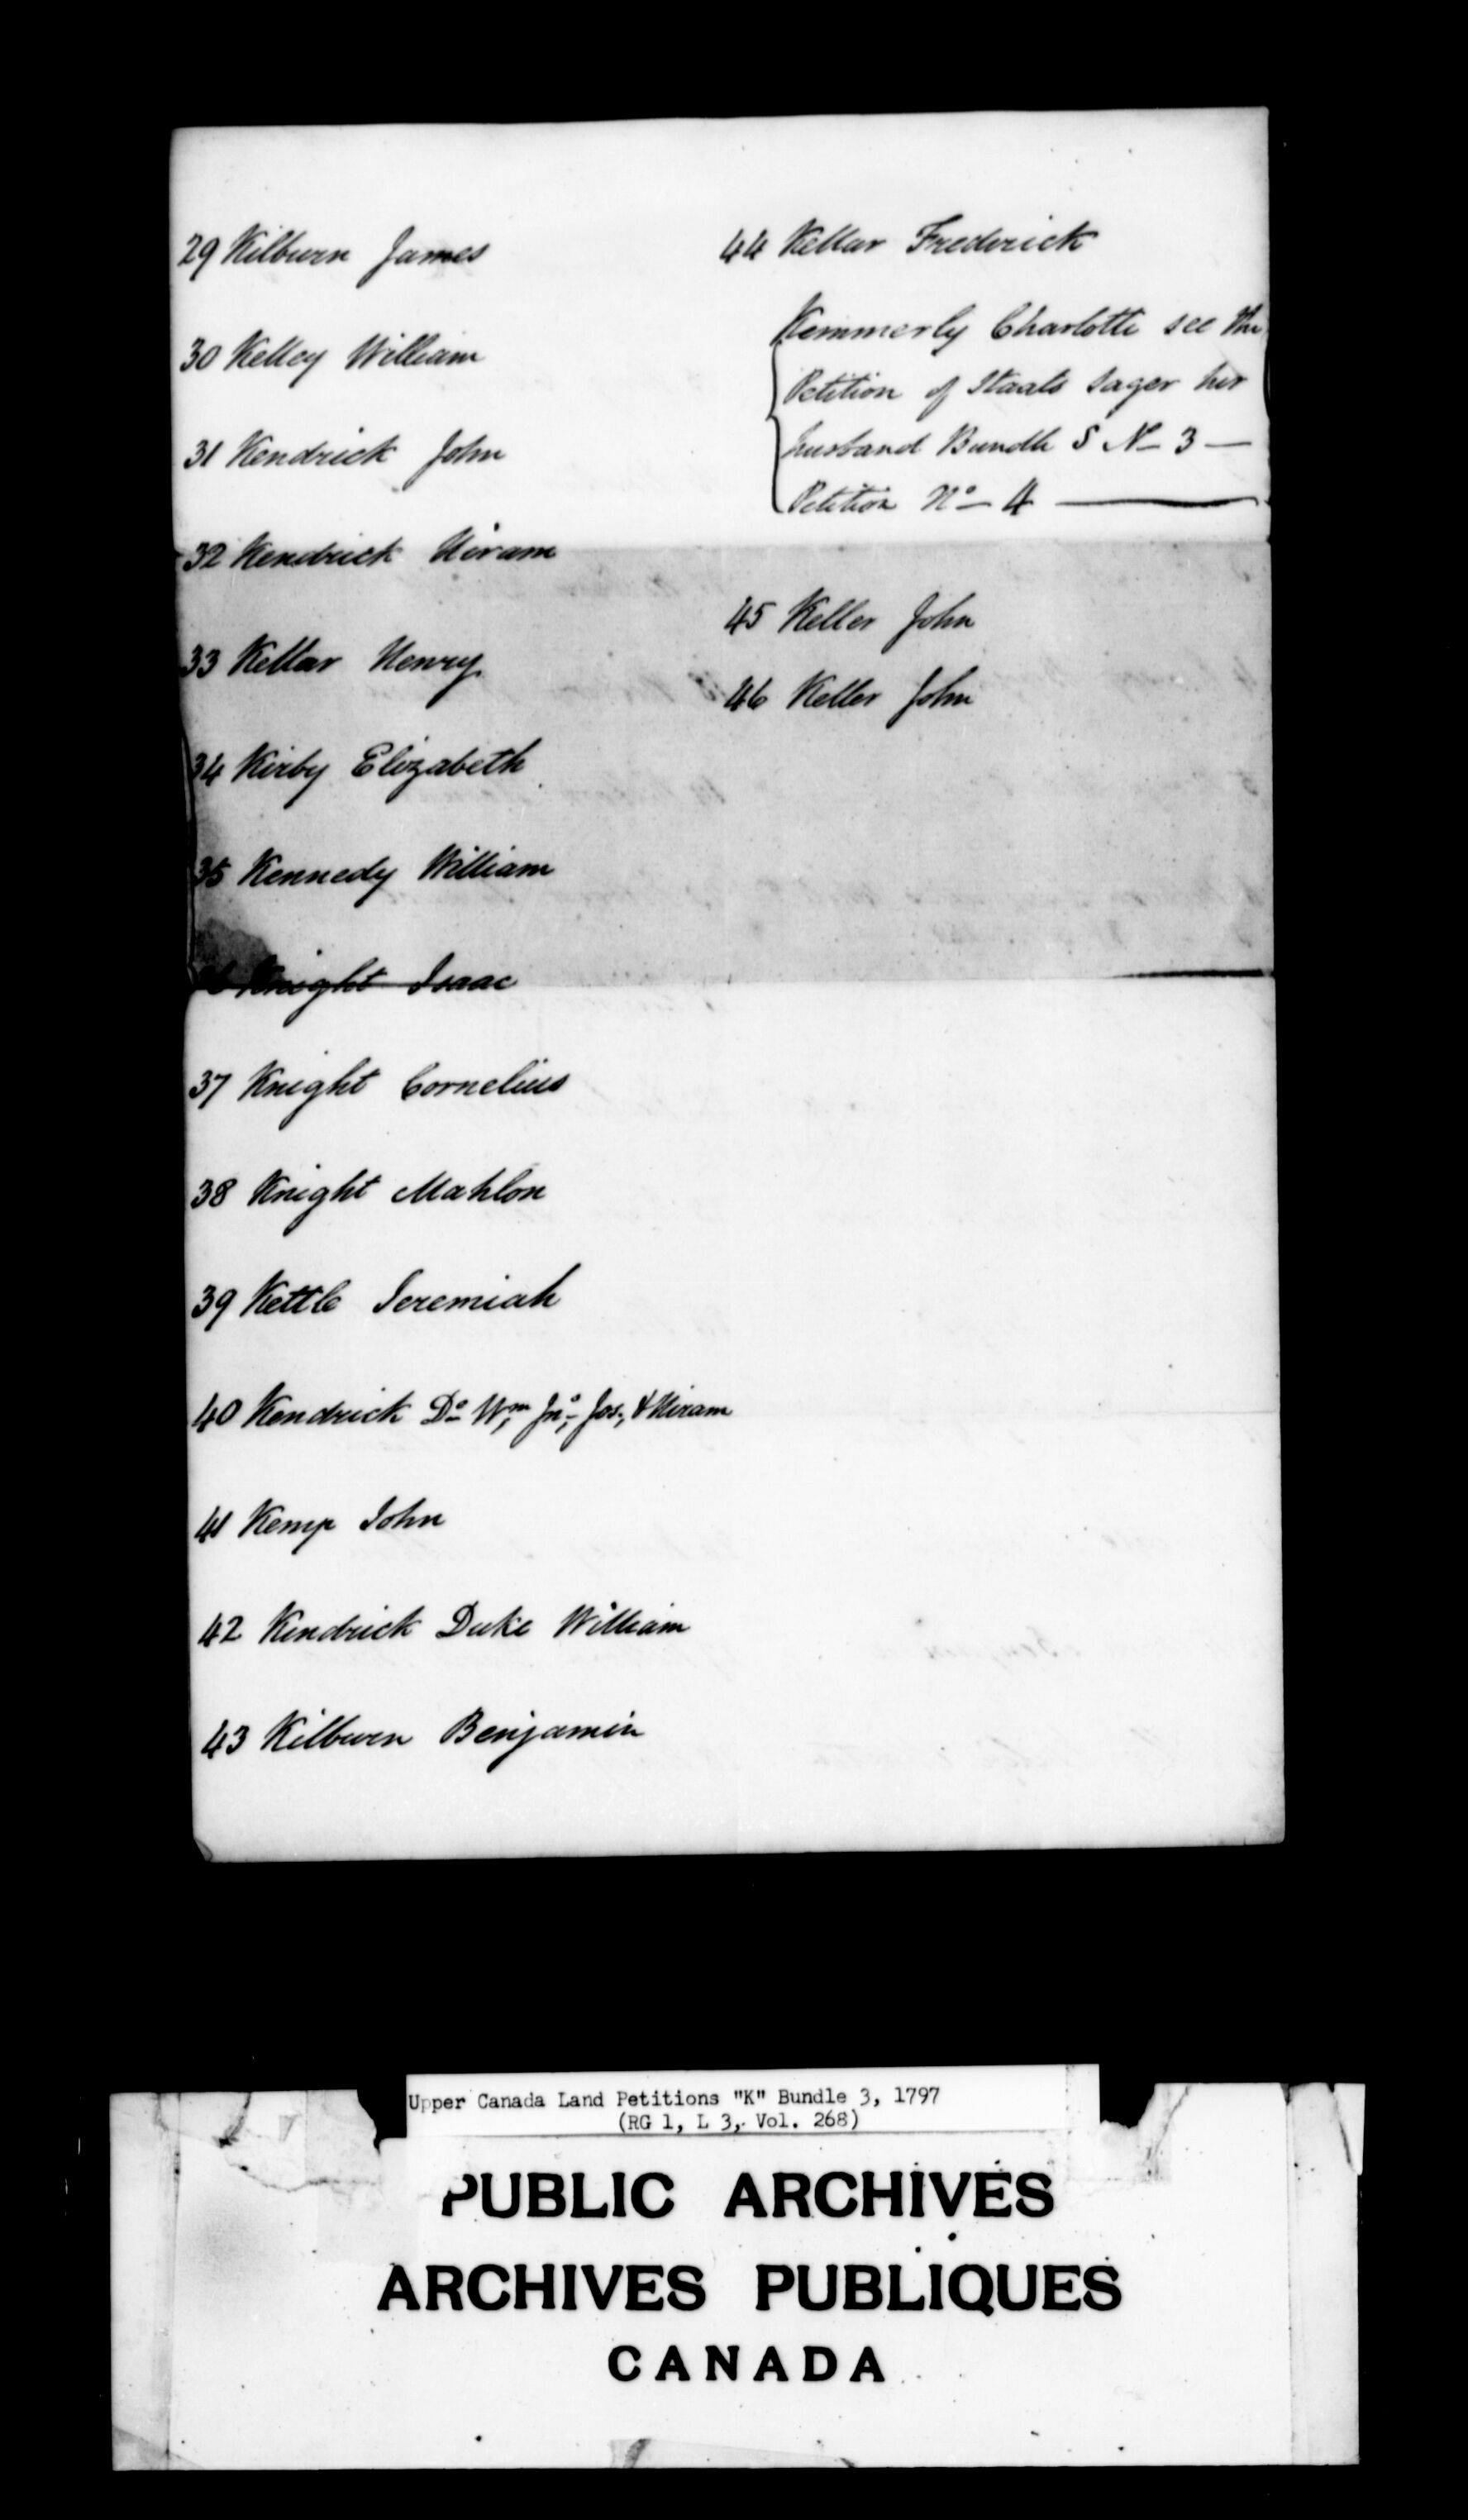 29 Kilburn James
30 Kelley William
31 Kendrick John
32 Kendrick Hiram
33 Kellar Henry
34 Kirby Elizabeth
35 Kennedy William
Knight Isaac
37 Knight Cornelius
38 Knight Mahlon
39 Kettle Jeremiah
40 Kendrick Do Wm, Jno, Jos, & Hiram
41 Kemp John
42 Kendrick Duke William
43 Kilburn Benjamin
44 Kellar Frederick
Kemmerly Charlotte see the
Petition of Staats Sager her
husband Bundle S No 3 —
Petition No 4 —
45 Keller John
46 Keller John
Upper Canada Land Petitions "K" Bundle 3, 1797
(RG 1, L 3, Vol. 268)
PUBLIC ARCHIVES
ARCHIVES PUBLIQUES
CANADA